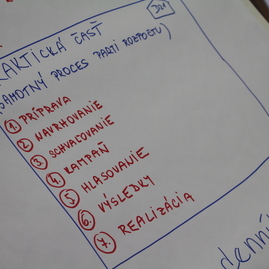 PRAKTICKÁ ČASŤ
(SAMOTNÝ PROCES PARTI ROZPOČTU)
1. PRÍPRAVA
2. NAVRHOVANIE
3. SCHVAĽOVANIE
4. KAMPAŇ
5. HLASOVANIE
6. VÝSLEDKY
7. REALIZÁCIA